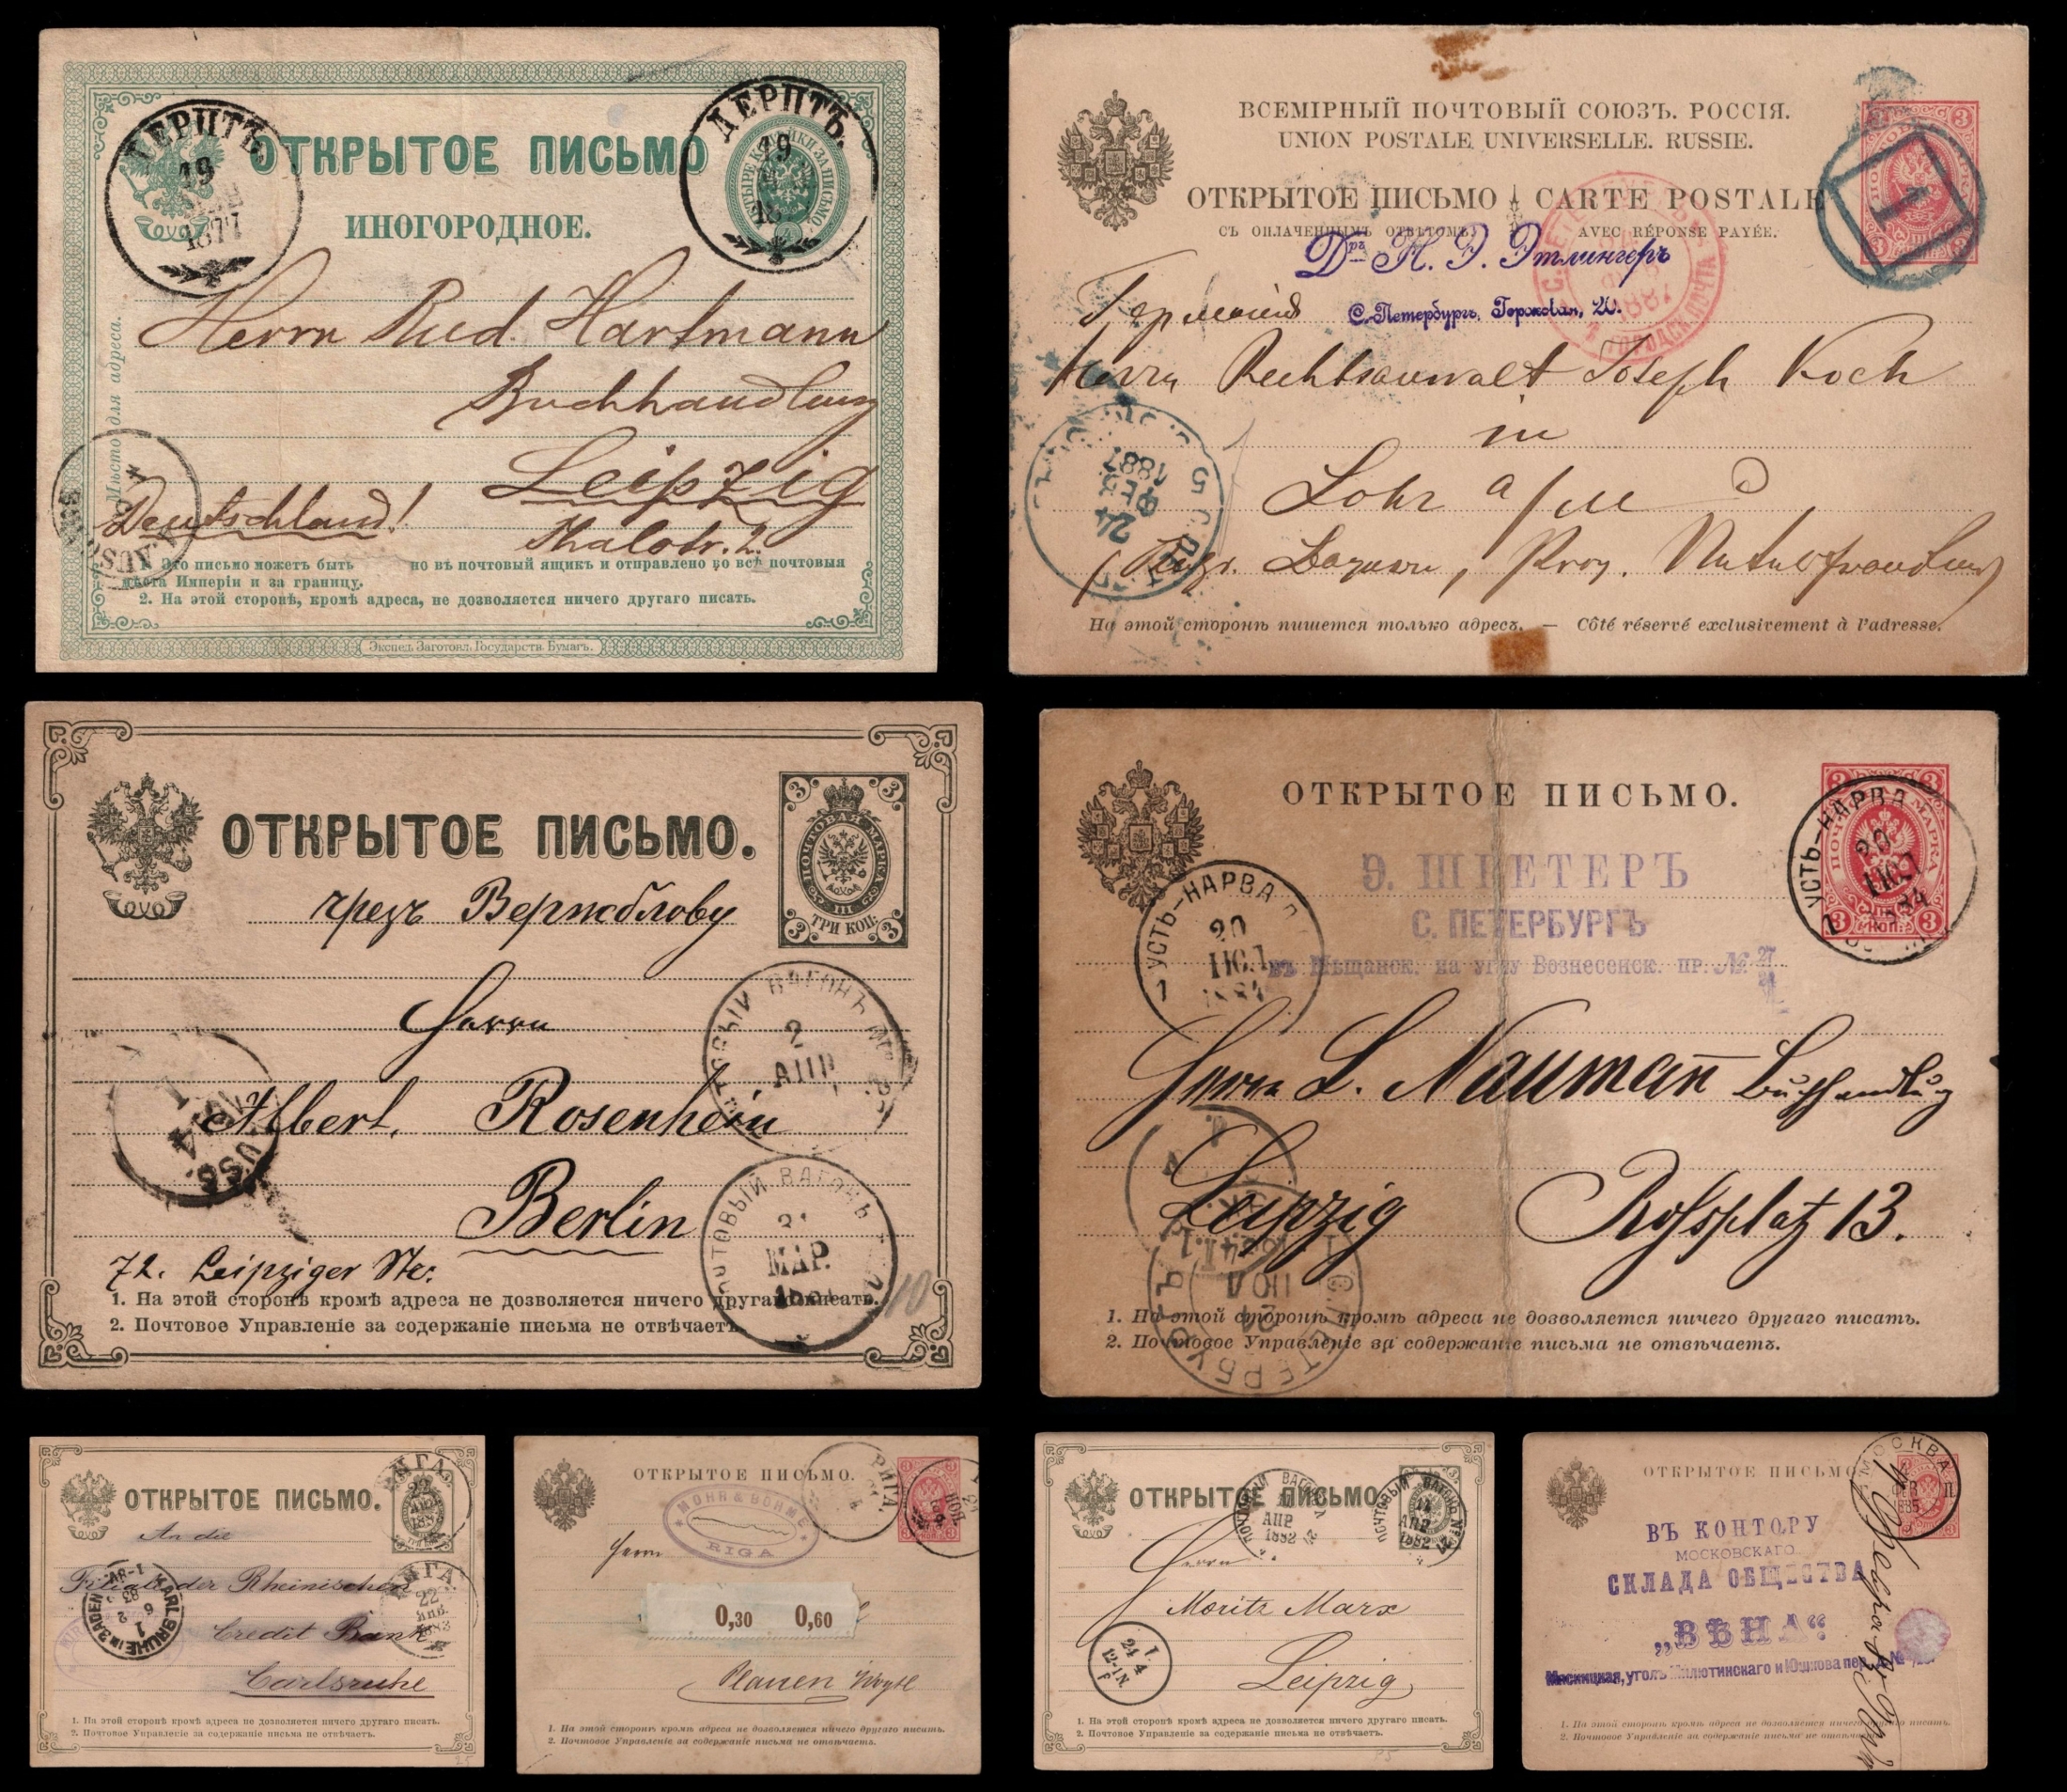 ОТКРЫТОЕ ПИСЬМО
ИНОГОРОДНОЕ.
ДЕРПТЪ.
19
1877
ДЕРПТЪ.
19
Мѣсто для адреса.
Herrn Rud. Hartmann
Buchhandlung
Leipzig
Deutschland!
Thalstr. 2.
1. Это письмо можетъ быть но въ почтовый ящикъ и отправлено во всѣ почтовыя
мѣста Имперіи и за границу.
2. На этой сторонѣ, кромѣ адреса, не дозволяется ничего другаго писать.
Экспед. Заготовл. Государств. Бумагъ.
ВСЕМІРНЫЙ ПОЧТОВЫЙ СОЮЗЪ. РОССІЯ.
UNION POSTALE UNIVERSELLE. RUSSIE.
ОТКРЫТОЕ ПИСЬМО CARTE POSTALE
СЪ ОПЛАЧЕННЫМЪ ОТВѢТОМЪ. AVEC RÉPONSE PAYÉE.
Дръ Н. Э. Этлингеръ
С. Петербургъ, Гороховая, 20.
1
Германія
Herrn Rechtsanwalt Joseph Koch
in
Lohr a/M
24
ФЕВ
1887
На этой сторонѣ пишется только адресъ. — Côté réservé exclusivement à l'adresse.
ОТКРЫТОЕ ПИСЬМО.
ПОЧТОВАЯ МАРКА
3 3
ТРИ КОП:
3 3
чрезъ Вержболову
Herrn
Albert Rosenhein
Berlin
72. Leipziger Str.
2
АПР
ПОЧТОВЫЙ ВАГОНЪ
31
МАР.
1. На этой сторонѣ кромѣ адреса не дозволяется ничего другаго писать.
2. Почтовое Управленіе за содержаніе письма не отвѣчаетъ.
10
ОТКРЫТОЕ ПИСЬМО.
Э. ШРЕТЕРЪ
С. ПЕТЕРБУРГЪ
Мѣщанск. на углу Вознесенск. пр. № 27
УСТЬ-НАРВА
20
ІЮЛ
1884
УСТЬ-НАРВА
20
ІЮЛ
1884
Herrn L. Naumann Buchhandlung
Leipzig Roßplatz 13.
1. На этой сторонѣ кромѣ адреса не дозволяется ничего другаго писать.
2. Почтовое Управленіе за содержаніе письма не отвѣчаетъ.
ОТКРЫТОЕ ПИСЬМО.
РИГА.
22
An die
Filiale der Rheinischen
Credit Bank
Carlsruhe
KARLSRUHE IN BADEN
РИГА
22
ЯНВ.
1883
1. На этой сторонѣ кромѣ адреса не дозволяется ничего другаго писать.
2. Почтовое Управленіе за содержаніе письма не отвѣчаетъ.
ОТКРЫТОЕ ПИСЬМО.
РИГА.
MOHR & BÖHME
RIGA
Herrn
0,30 0,60
Plauen i/Vogtl
1. На этой сторонѣ кромѣ адреса не дозволяется ничего другаго писать.
2. Почтовое Управленіе за содержаніе письма не отвѣчаетъ.
ОТКРЫТОЕ ПИСЬМО.
ПОЧТОВЫЙ ВАГОНЪ
АПР
1882
ПОЧТОВЫЙ ВАГОНЪ
АПР
1882
Herrn
Moritz Marx
Leipzig
24 4
1. На этой сторонѣ кромѣ адреса не дозволяется ничего другаго писать.
2. Почтовое Управленіе за содержаніе письма не отвѣчаетъ.
ОТКРЫТОЕ ПИСЬМО
МОСКВА
ФЕВ
1885
ВЪ КОНТОРУ
МОСКОВСКАГО
СКЛАДА ОБЩЕСТВА
„ВѢНА“
Мясницкая, уголъ Милютинскаго и Юшкова пер. д. №
1. На этой сторонѣ кромѣ адреса не дозволяется ничего другаго писать.
2. Почтовое Управленіе за содержаніе письма не отвѣчаетъ.